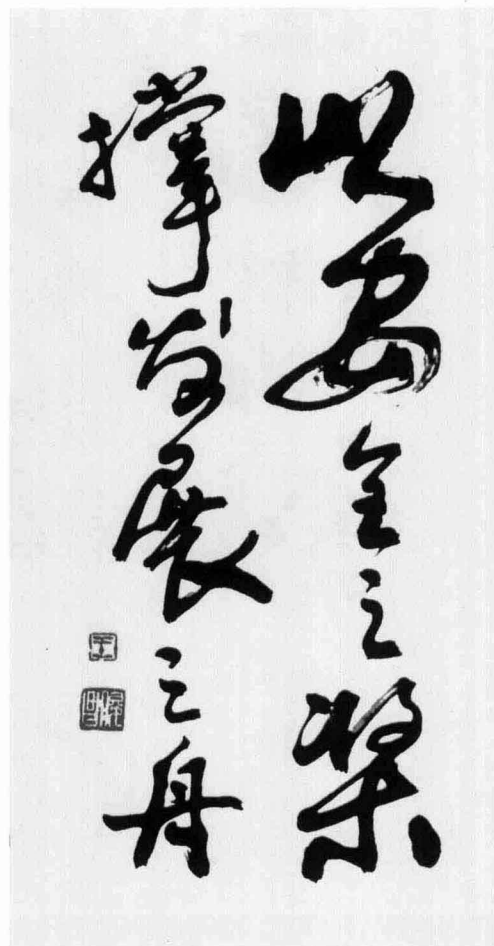 以安全之桨
撑发展之舟